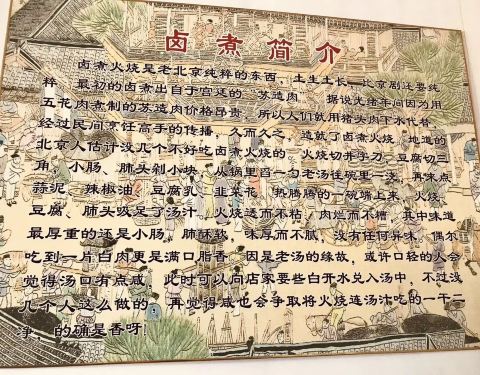 卤煮简介
卤煮火烧是老北京纯粹的东西，土生土长，比京剧还要纯
粹。最初的卤煮出自于宫廷的“苏造肉”。据说光绪年间因为用
五花肉煮制的苏造肉价格昂贵，所以人们就用猪头肉下水代替。
经过民间烹饪高手的传播，久而久之，造就了卤煮火烧。地道的
北京人估计没几个不好吃卤煮火烧的。火烧切井字刀，豆腐切三
角，小肠、肺头剁小块，从锅里舀一勺老汤往碗里一浇，再来点
蒜泥、辣椒油、豆腐乳、韭菜花。热腾腾的一碗端上来，火烧、
豆腐、肺头吸足了汤汁。火烧透而不粘，肉烂而不糟，其中味道
最厚重的还是小肠，肺酥软，味厚而不腻，没有任何异味。偶尔
吃到一片白肉更是满口脂香。因是老汤的缘故，或许口轻的人会
觉得汤口有点咸，此时可以向店家要些白开水兑入汤中，不过没
几个人这么做的，再觉得咸也会争取将火烧连汤汁吃的一干二
净，的确是香呀！